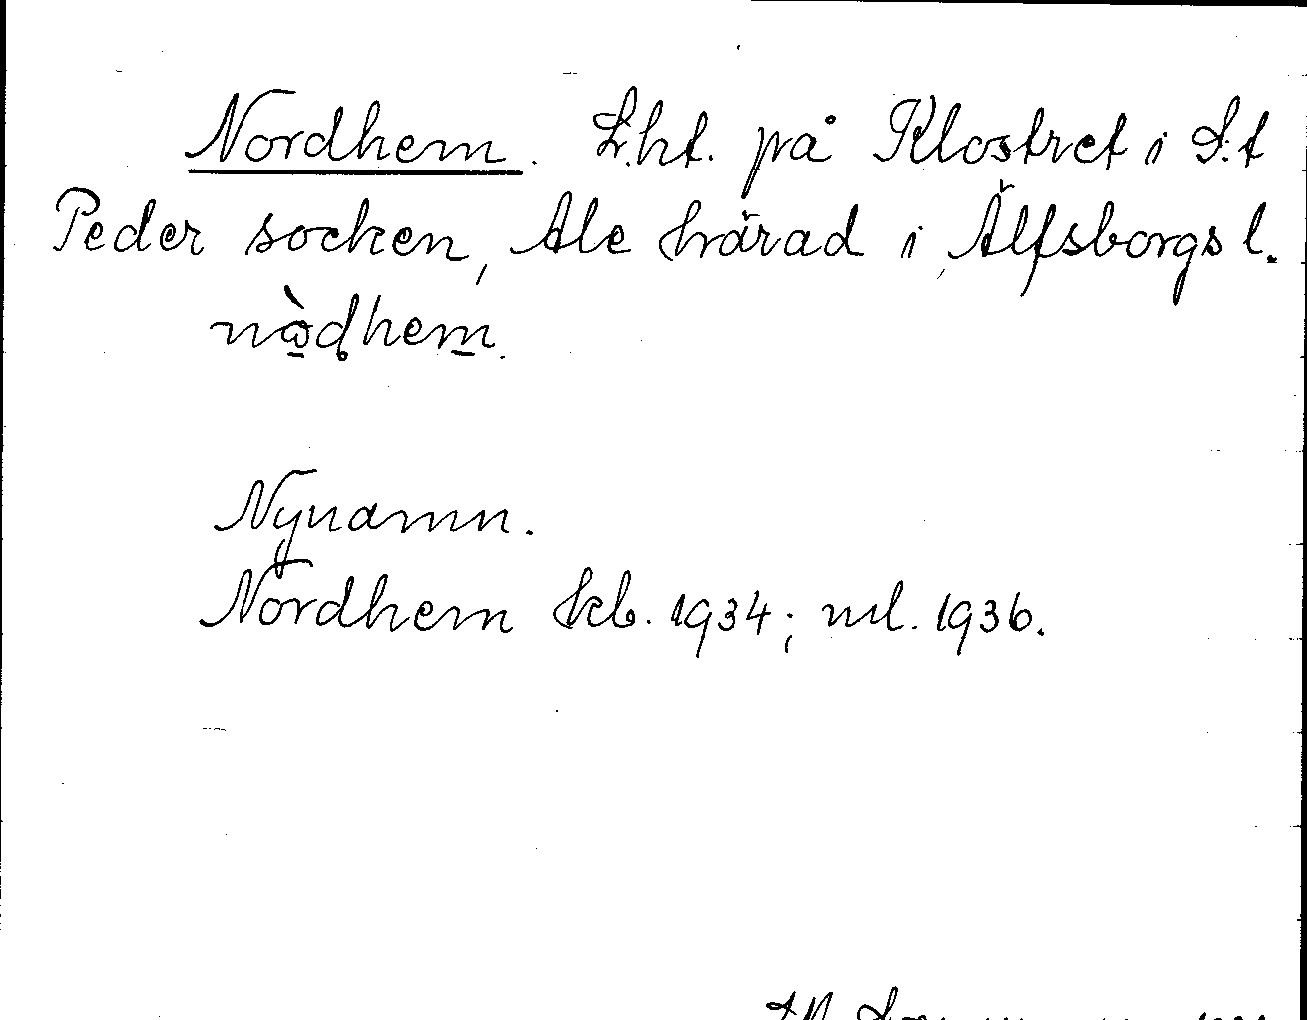 Nordhem. L.ht. på Klostret i S:t
Peder socken, Ale härad i Älfsborgs l.
nòdhem.
Nynamn.
Nordhem kb. 1934; ml. 1936.